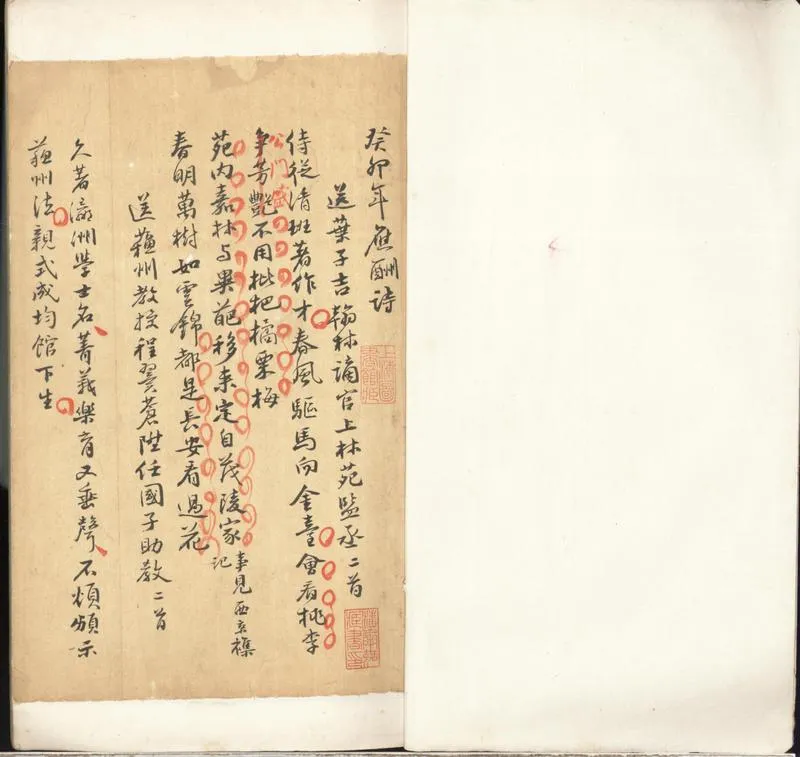 癸卯年應酬詩
送葉子吉翰林謫官上林苑監丞二首
侍從清班著作才春風驅馬向金臺會看桃李
公門盛
爭芳艷不用枇杷橘栗梅
苑内嘉林与異葩移来定自茂陵家事見西京襍
記
春明萬樹如雲錦都是長安看過花
送蘇州教授程翼蒼陞任國子助教二首
久著瀛洲學士名菁莪樂育又垂聲不煩頒示
蘇州法親式成均館下生
上海圖書館藏